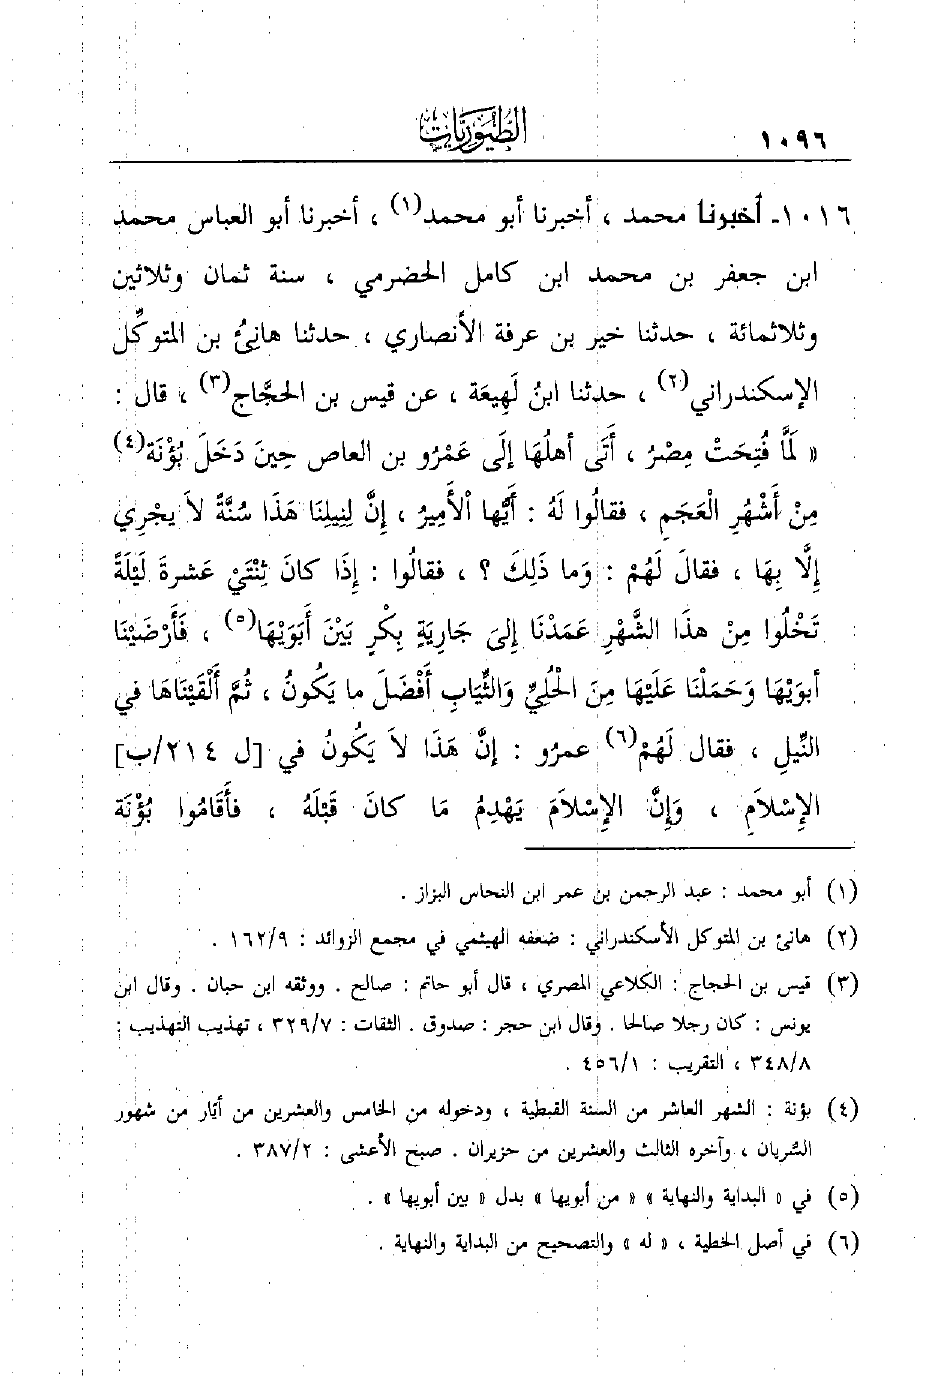 ١٠٩٦
الطيوريات
١٠١٦- أخبرنا محمد ، أخبرنا أبو محمد(١) ، أخبرنا أبو العباس محمد
ابن جعفر بن محمد ابن كامل الحضرمي ، سنة ثمان وثلاثين
وثلاثمائة ، حدثنا خير بن عرفة الأنصاري ، حدثنا هانئُ بن المتوكِّل
الإسكندراني(٢) ، حدثنا ابنُ لَهِيعَة ، عن قيس بن الحجَّاج(٣) ، قال :
« لَمَّا فُتِحَتْ مِصْرُ ، أَتَى أهلُهَا إِلَى عَمْرُو بن العاص حِينَ دَخَلَ بُؤْنَة(٤)
مِنْ أَشْهُرِ الْعَجَمِ ، فقالُوا لَهُ : أَيُّها الأَمِيرُ ، إِنَّ لِنِيلِنَا هَذَا سُنَّةً لاَ يجْرِي
إِلَّا بِهَا ، فقالَ لَهُمْ : وَما ذَلِكَ ؟ ، فقالُوا : إِذَا كانَ ثِنْتَيْ عَشرةَ لَيْلَةً
تَخْلُوا مِنْ هذَا الشَّهْرِ عَمَدْنَا إِلىَ جَارِيَةٍ بِكْرٍ بَيْنَ أَبَوَيْهَا(٥) ، فَأَرْضَيْنَا
أبوَيْهَا وَحَمَلْنَا عَلَيْهَا مِنَ الْحُلِيِّ وَالثِّيَابِ أَفْضَلَ ما يَكُونُ ، ثُمَّ أَلْقَيْنَاهَا في
النِّيلِ ، فقال لَهُمْ(٦) عمرُو : إنَّ هَذَا لاَ يَكُونُ في [ل ٢١٤/ب]
الإِسْلاَمِ ، وَإِنَّ الإِسْلاَمَ يَهْدِمُ مَا كانَ قَبْلَهُ ، فأَقَامُوا بُؤْنَة
(١) أبو محمد : عبد الرحمن بن عمر ابن النحاس البزاز .
(٢) هانئ بن المتوكل الأسكندراني : ضعفه الهيثمي في مجمع الزوائد : ١٦٢/٩ .
(٣) قيس بن الحجاج : الكلاعي المصري ، قال أبو حاتم : صالح . ووثقه ابن حبان . وقال ابن
يونس : كان رجلا صالحا . وقال ابن حجر : صدوق . الثقات : ٣٢٩/٧ ، تهذيب التهذيب :
٣٤٨/٨ ، التقريب : ٤٥٦/١ .
(٤) بؤنة : الشهر العاشر من السنة القبطية ، ودخوله من الخامس والعشرين من أيّار من شهور
السُّريان ، وآخره الثالث والعشرين من حزيران . صبح الأعشى : ٣٨٧/٢ .
(٥) في « البداية والنهاية » « من أبويها » بدل « بين أبويها » .
(٦) في أصل الخطية ، « له » والتصحيح من البداية والنهاية .